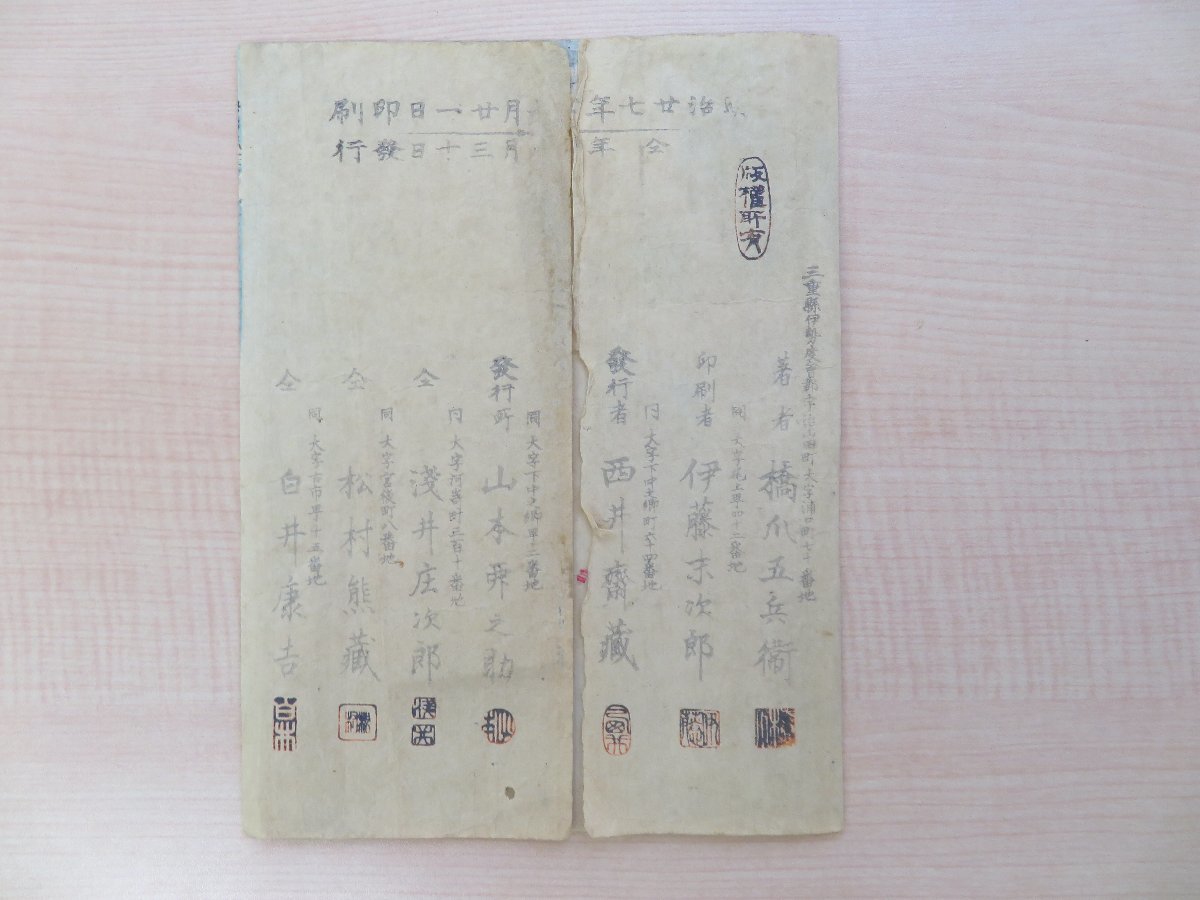 治廿七年 月廿一日印刷
仝年 月三十日發行
版權所有
三重縣伊勢度會郡宇治山田町大字浦口町七十番地
著者 橋爪五兵衞
同 大字尾上町四十二番地
印刷者 伊藤末次郎
同 大字下中之鄉町六十四番地
發行者 西井齋藏
同 大字下中之鄉 十二番地
發行所 山本舜之助
同 大字河崎町三百十番地
仝 淺井庄次郎
同 大字宮後町八番地
仝 松村熊藏
同 大字古市 十五番地
仝 白井康吉